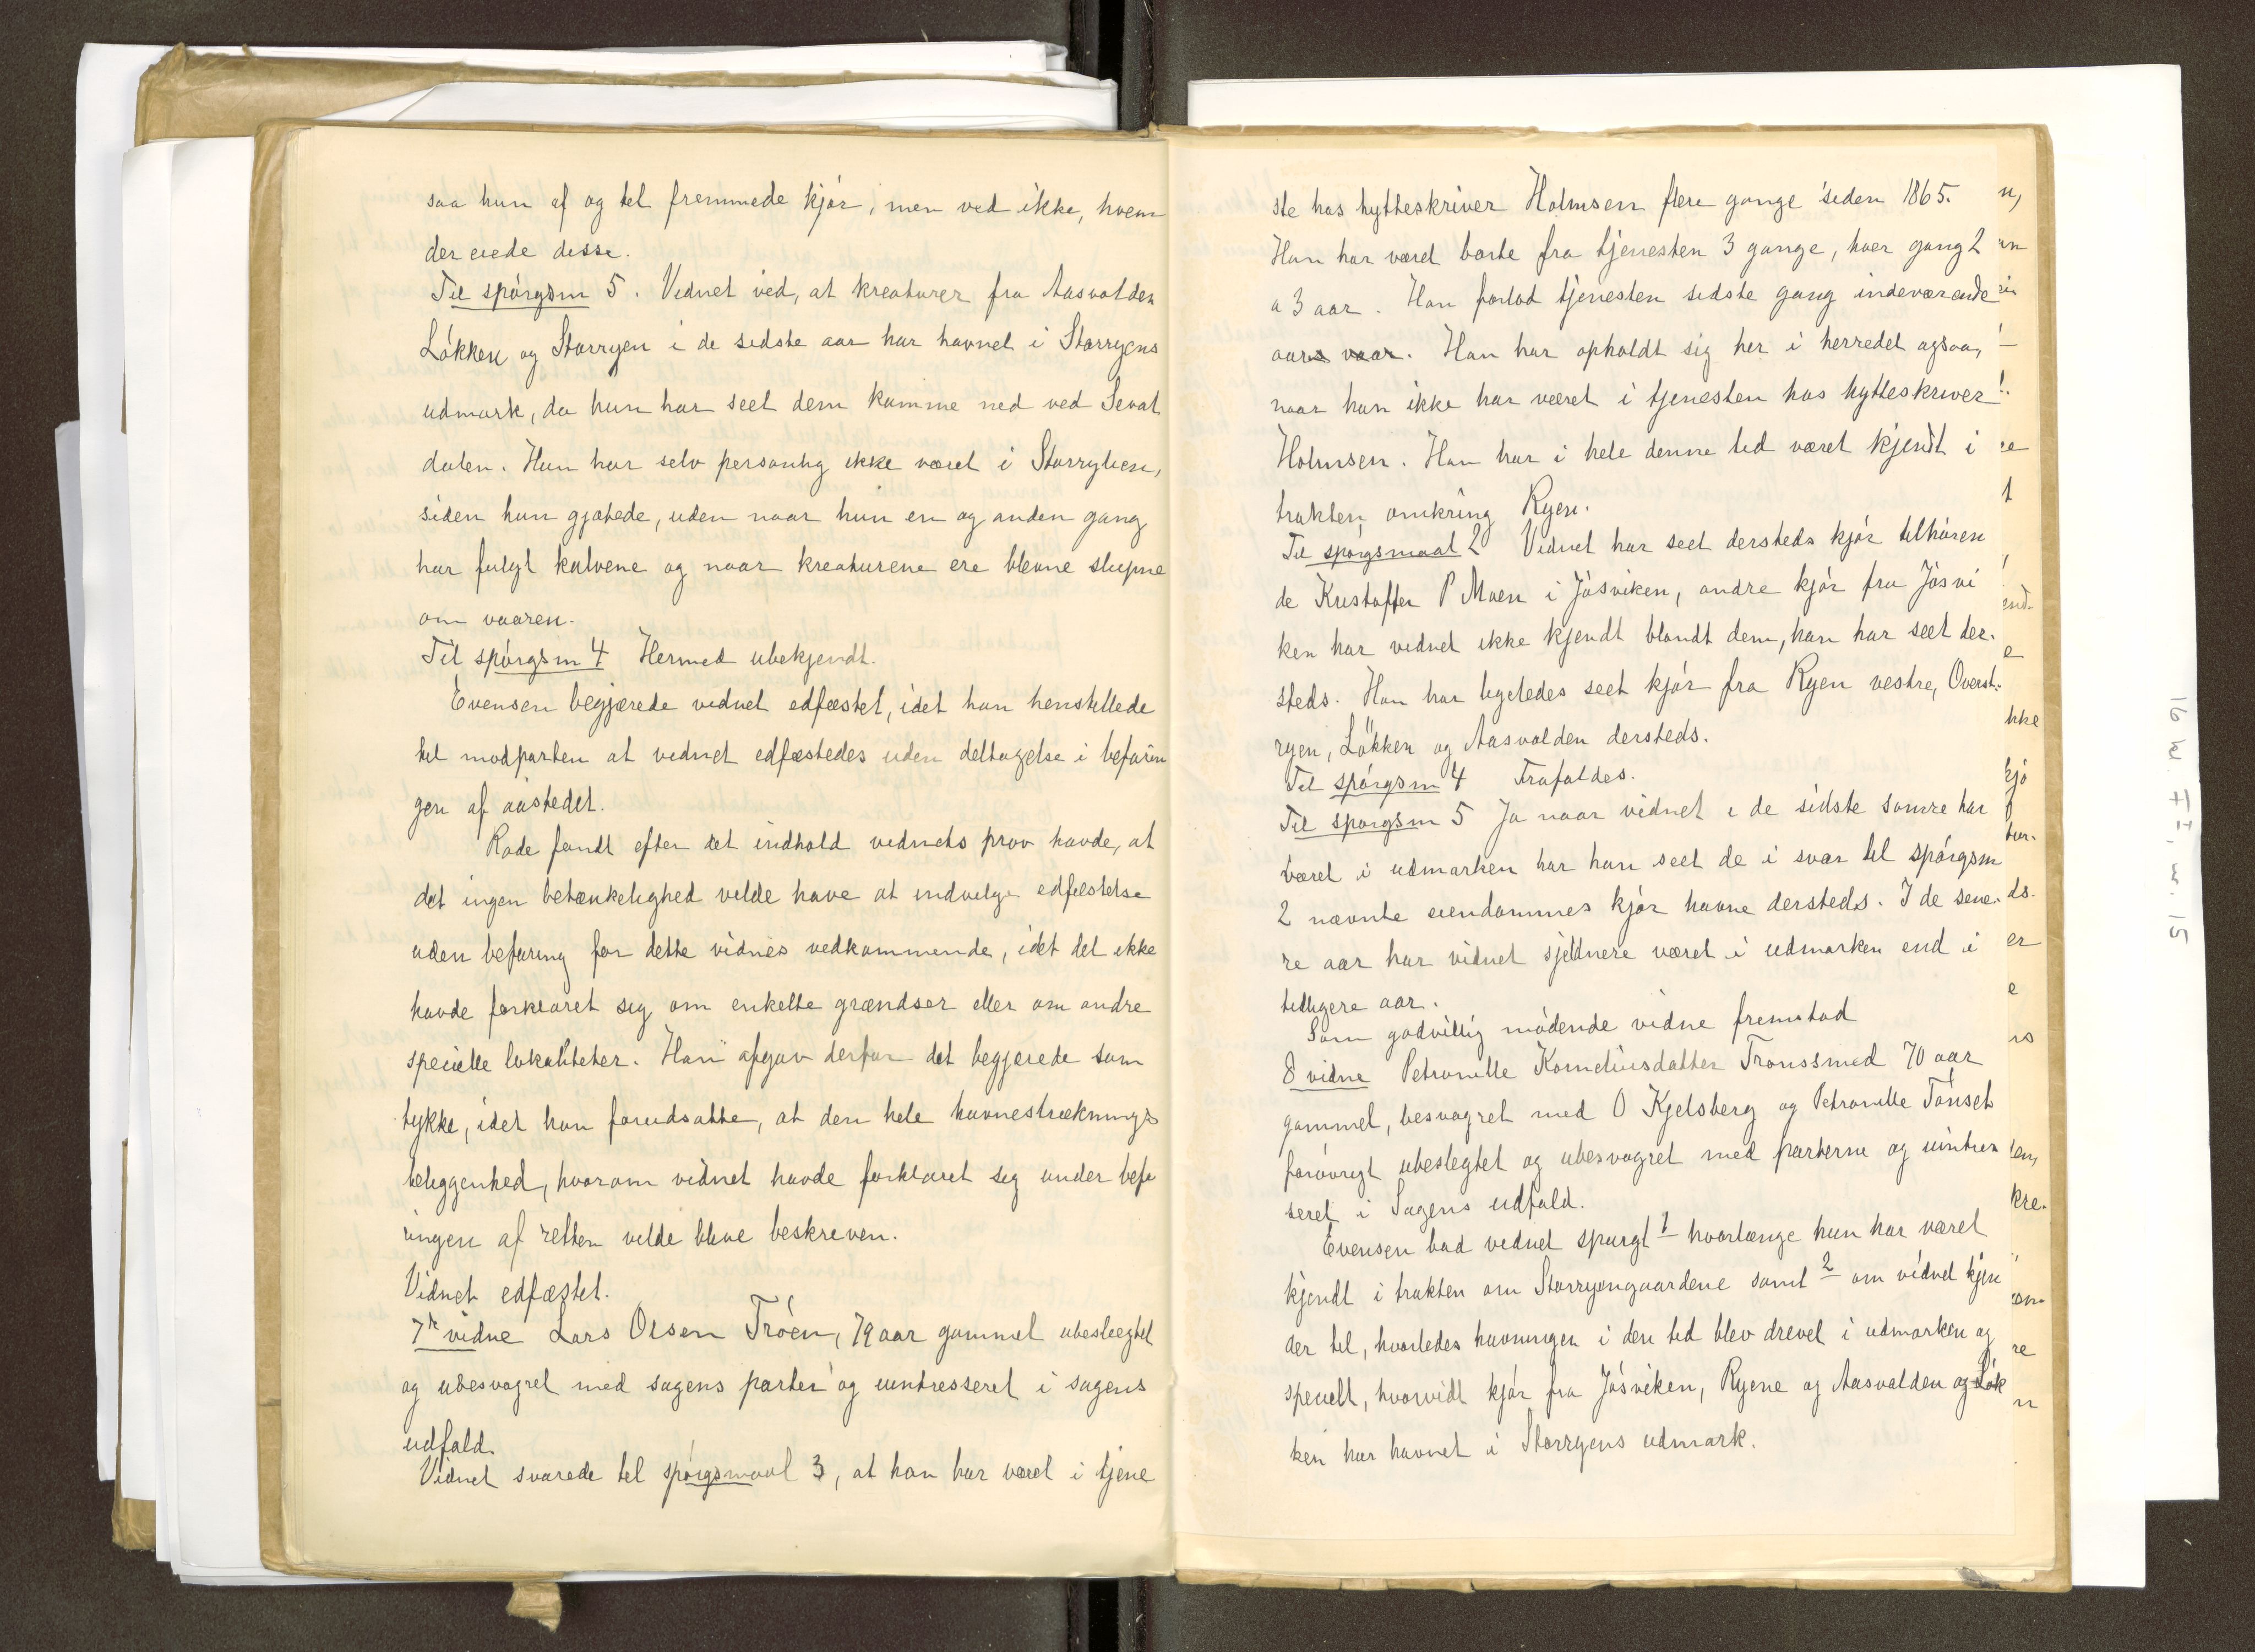 saa hun af og til fremmede kjør, men ved ikke, hvem
der eiede disse.
Til spørgsm 5. Vidnet ved, at kreaturer fra Aasvolden
Løkken og Storryen i de sidste aar har havnet i Storryens
udmark, da hun har seet dem komme ned ved Sevat
dalen. Hun har selv personlig ikke været i Storrylien,
siden hun gjætede, uden naar hun en og anden gang
har fulgt kalvene og naar kreaturene ere blevne slupne
om vaaren.
Til spørgsm 4 Hermed ubekjendt.
Evensen begjærede vidnet edfæstet, idet han henstillede
til modparten at vidnet edfæstedes uden deltagelse i befarin
gen af aastedet.
Rode fandt efter det indhold vidnets prov havde, at
det ingen betænkelighed vilde have at indvilge edfæstelse
uden befaring for dette vidnes vedkommende, idet det ikke
havde forklaret sig om enkelte grændser eller om andre
specielle lokaliteter. Han afgav derfor det begjærede sam
tykke, idet han forudsatte, at den hele havnestræknings
beliggenhed, hvorom vidnet havde forklaret sig under befa
ringen af retten vilde blive beskreven.
Vidnet edfæstet.
7de vidne Lars Olsen Trøen, 79 aar gammel ubeslægtet
og ubesvogret med sagens parter og uintresseret i sagens
udfald.
Vidnet svarede til spørgsmaal 3, at han har været i tjene
ste hos hytteskriver Holmsen flere gange siden 1865.
Han har været borte fra tjenesten 3 gange, hver gang 2
a 3 aar. Han forlod tjenesten sidste gang indeværende
aars vaar. Han har opholdt sig her i herredet ogsaa,
naar han ikke har været i tjenesten hos hytteskriver
Holmsen. Han har i hele denne tid været kjendt i
trakten omkring Ryen.
Til spørgsmaal 2 Vidnet har seet dersteds kjør tilhøren
de Kristoffer P Moen i Jøsviken, andre kjør fra Jøsvi
ken har vidnet ikke kjendt blandt dem, han har seet der-
steds. Han har ligeledes seet kjør fra Ryen vestre, Øverst-
ryen, Løkken og Aasvolden dersteds.
Til spørgsm 4 Frafaldes.
Til spørgsm 5 Ja naar vidnet i de sidste somre har
været i udmarken har han seet de i svar til spørgsm
2 nævnte eiendommes kjør havne dersteds. I de sene-
re aar har vidnet sjeldnere været i udmarken end i
tidligere aar.
Som godvillig mødende vidne fremstod
8 vidne Petronille Korneliusdatter Tronssmed 70 aar
gammel, besvogret med O Kjelsberg og Petronille Tønset
forøvrigt ubeslegtet og ubesvogret med parterne og uintres
seret i Sagens udfald.
Evensen bad vidnet spurgt 1 hvorlænge hun har været
kjendt i trakten om Storryengaardene samt 2 om vidnet kjen
der til, hvorledes havningen i den tid blev drevet i udmarken og
specielt, hvorvidt kjør fra Jøsviken, Ryene og Aasvolden og Løk
ken har havnet i Storryens udmark.
16 W. II, w. 15